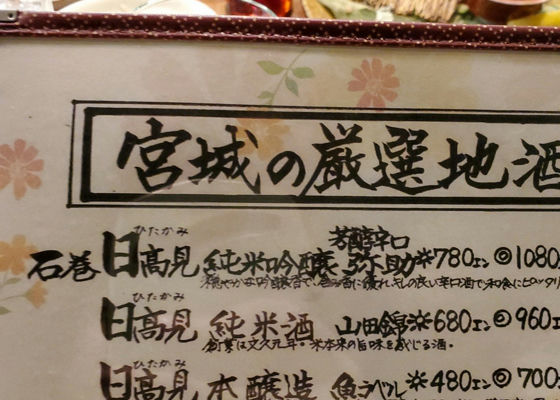 宮城の厳選地酒
ひたかみ 芳醇辛口
石巻 日高見 純米吟醸 弥助 ※780エン ◎1080
穏やかな吟醸香で、含み香に優れ、キレの良い辛口酒で和食にピッタリ
ひたかみ
日高見 純米酒 山田錦 ※680エン ◎960エ
創業は文久元年。米本来の旨味を感じる酒。
ひたかみ
日高見 本醸造 魚ラベル ※480エン ◎700